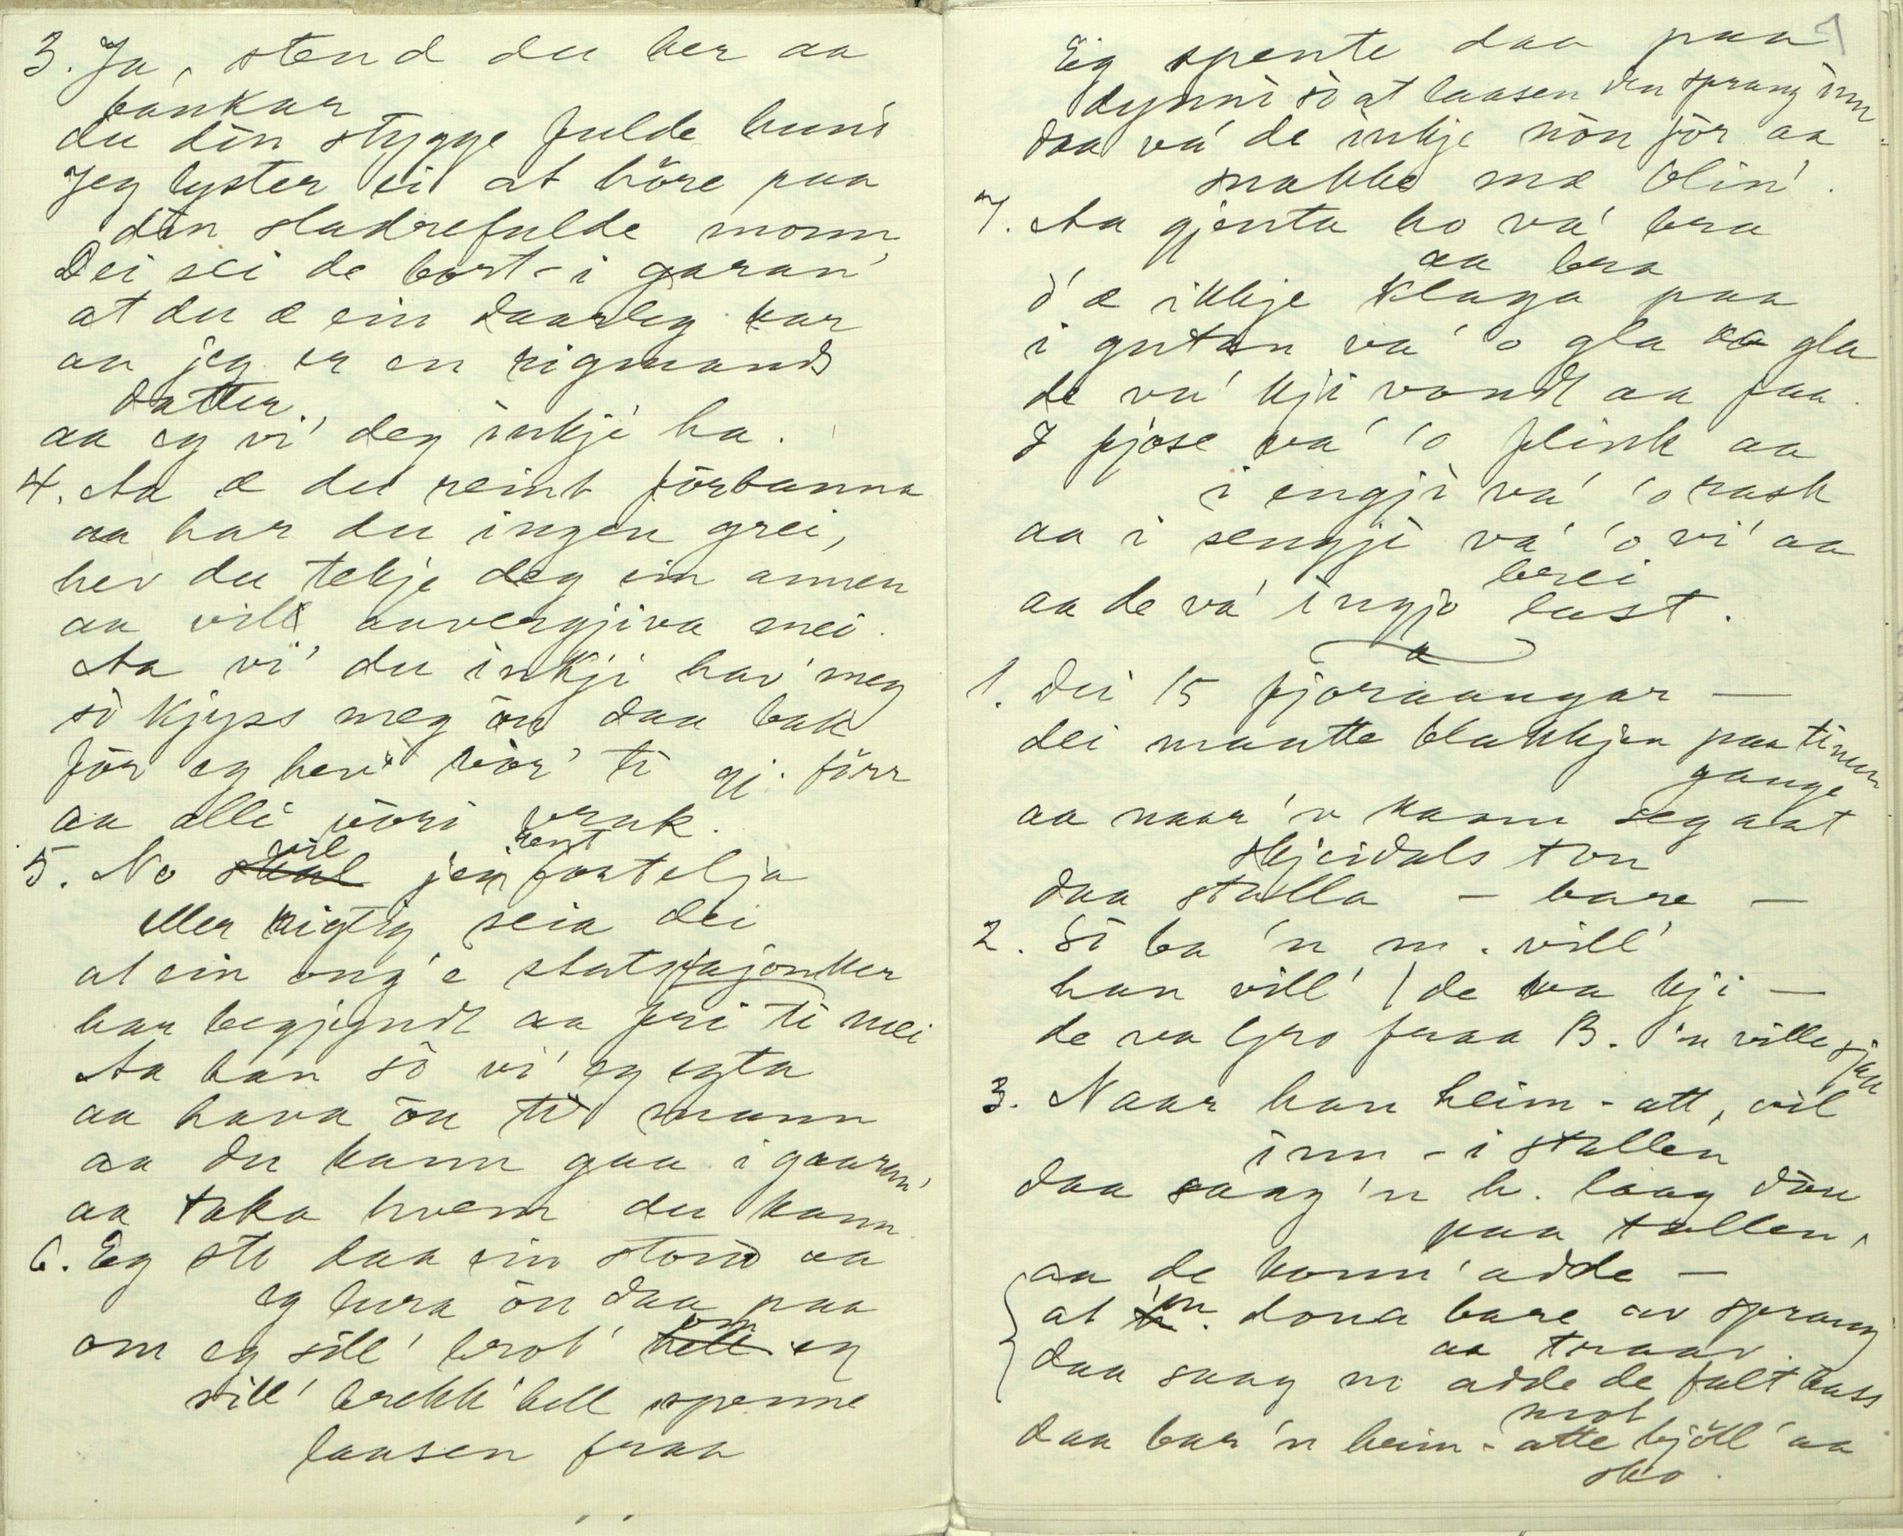 3. Ja, stend du her aa
bankar
du din stygge fulde hund
Jeg lyster ei at høre paa
din sladrefulde monn
Dei sei de bort-i garan'
at du æ ein daarleg kar
aa jeg er en rigmands
datter.
aa eg vi' deg inkji ha.
4. Aa æ du reint førbanna
aa har du ingen grei,
hev du tekje deg ein annen
aa vill' auvergjiva mei.
Aa vi' du inkji hav' meg
so kjyss meg ôn daa bak
før eg hev vør' ti gj. førr
aa alli vôri vrak.
5. No vil jei rent fortelja
eller rigtig seia dei
at ein ong'e statsfajonker
har begjyndt aa fri ti mei
Aa han so vi' eg egta
aa hava ôn ti mann
aa du kann gaa i gaaran'
aa taka hvem du kann.
6. Eg sto daa ein stond aa
eg lura ôn daa paa
om eg sill' brot' om eg
sill' brekk' hell spenne
laasen fraa
Eig spente daa paa
dynni so at laasen den sprang inn
daa va' de inkje nôn før aa
snakke mæ blin'.
7. Aa gjenta ho va' bra
aa bra
d' æ ikkje klaga paa
i gutan va' 'o gla aa gla
de va' kji vondt aa faa.
I fjose va' 'o flink aa
i engji va' 'o rask
aa i sengji va' 'o vi' aa
brei
aa de va' ingjo last.
1. Dei 15 fjoraangar —
dei maatte blakkjen paa timen
gange
aa naar 'n kaam seg aat
Skjeidals tvn
daa stalla — bare —
2. So ba 'n m. vill'
han vill' / de va kji —
de va Gro fraa B. 'n ville sjaa
3. Naar han heim-att, vil
inn-i stallen
daa saag 'n h. laag dôu
paa tallen,
aa de komm' adde —
at 'n doua bare av sprang
aa traav.
daa saag m adde de falt bass
daa bar 'n heim-atte mot kjôll' aa
sko.